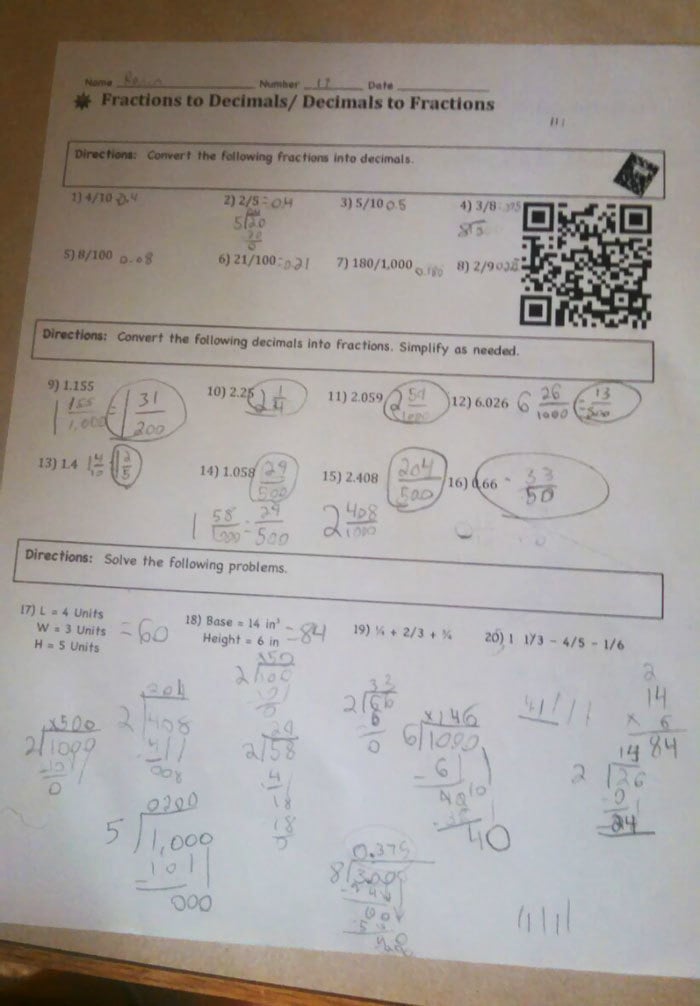 Name Number 17 Date
Fractions to Decimals/ Decimals to Fractions
Directions: Convert the following fractions into decimals.
1) 4/10 0.4 2) 2/5 = 0.4 3) 5/10 0.5 4) 3/8 .375
5) 8/100 0.08 6) 21/100 = 0.21 7) 180/1,000 0.180 8) 2/9
Directions: Convert the following decimals into fractions. Simplify as needed.
9) 1.155 10) 2.25 2 1/4 11) 2.059 2 59/1000 12) 6.026 6 26/1000 = 13/500
1 155/1,000 = 1 31/200
13) 1.4 1 4/10 1 2/5 14) 1.058 29/500 15) 2.408 204/500 16) 0.66 - 33/50
1 58/1000 = 29/500 2 408/1000
Directions: Solve the following problems.
17) L = 4 Units 18) Base = 14 in² 19) ¼ + 2/3 + ¾ 20) 1 1/3 - 4/5 - 1/6
W = 3 Units = 60 Height = 6 in = 84
H = 5 Units
x500
2 1000
204
2 408
008
x50
2 100
29
2 58
18
18
0
33
2 66
6
0
x146
6 1000
6
40
2
14
x 6
84
2 26
0200
5 1,000
000
0.375
8